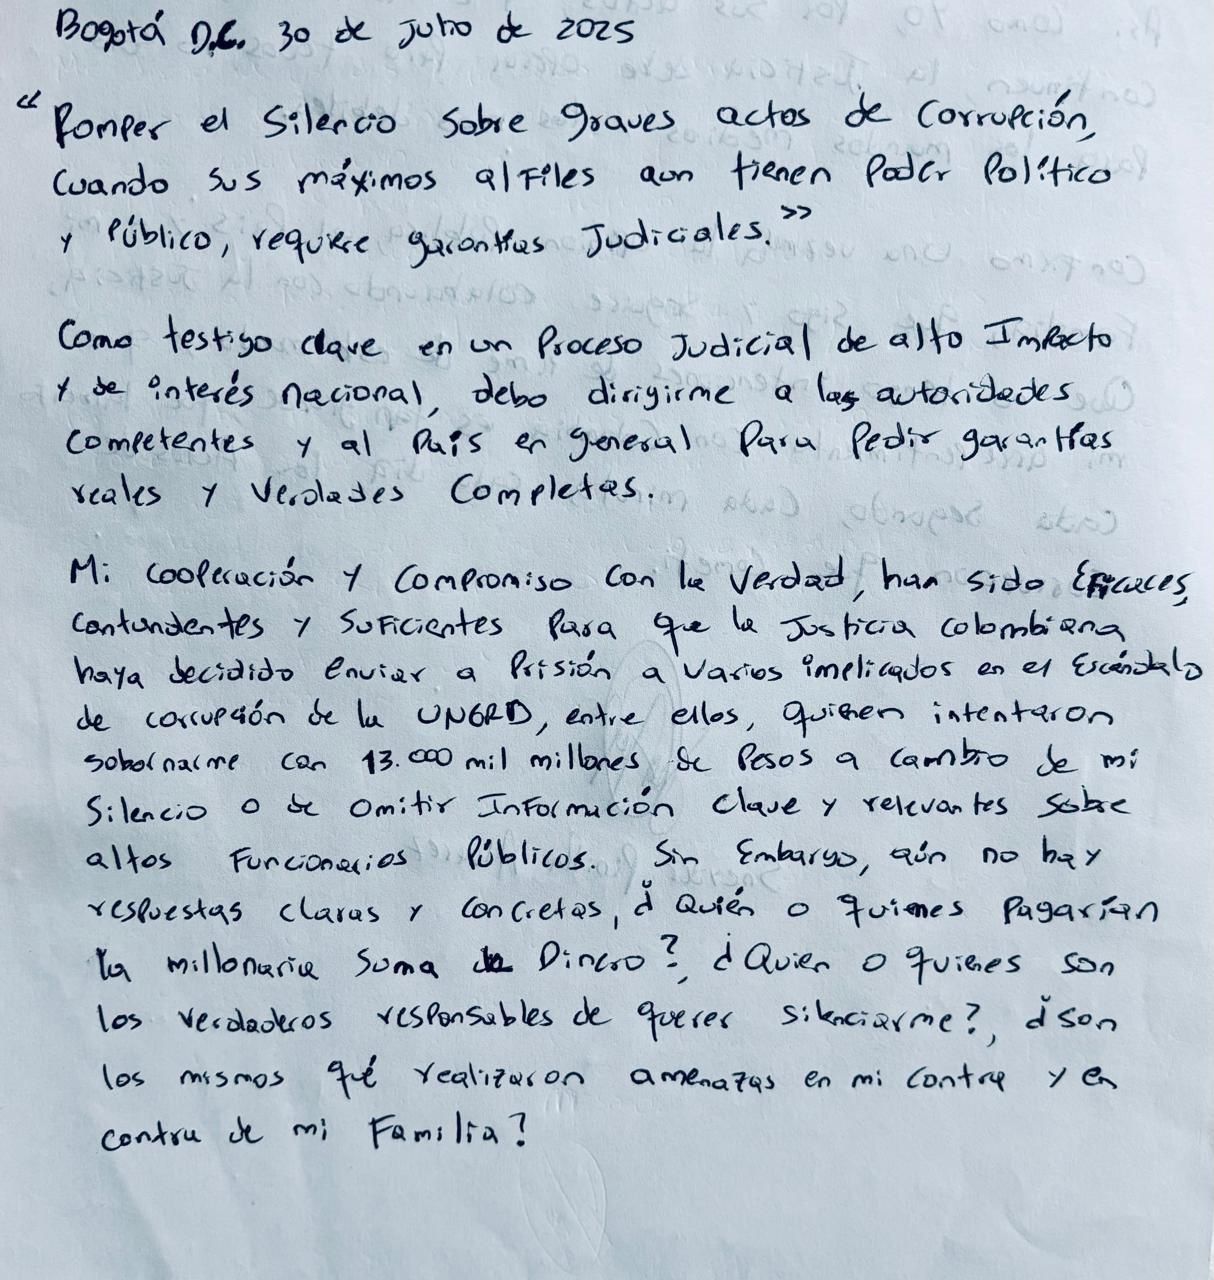 Bogotá D.C. 30 de Julio de 2025
"Romper el Silencio sobre graves actos de Corrupción,
Cuando sus máximos alfiles aun tienen Poder Político
y Público, requiere garantías Judiciales."
Como testigo clave en un Proceso Judicial de alto Impacto
y de interés nacional, debo dirigirme a las autoridades
Competentes y al País en general Para Pedir garantías
reales y Verdades Completas.
Mi cooperación y Compromiso con la Verdad, han sido Eficaces,
Contundentes y Suficientes Para que la Justicia colombiana
haya decidido enviar a Prisión a Varios implicados en el Escándalo
de corrupción de la UNGRD, entre ellos, quienen intentaron
sobornarme con 13.000 mil millones de Pesos a cambio de mi
Silencio o de omitir Información Clave y relevantes Sobre
altos Funcionarios Públicos. Sin Embargo, aún no hay
respuestas claras y concretas, ¿Quién o quienes Pagarían
la millonaria Suma de Dinero?, ¿Quien o quienes son
los verdaderos responsables de querer silenciarme?, ¿son
los mismos qué realizaron amenazas en mi contra y en
contra de mi Familia?